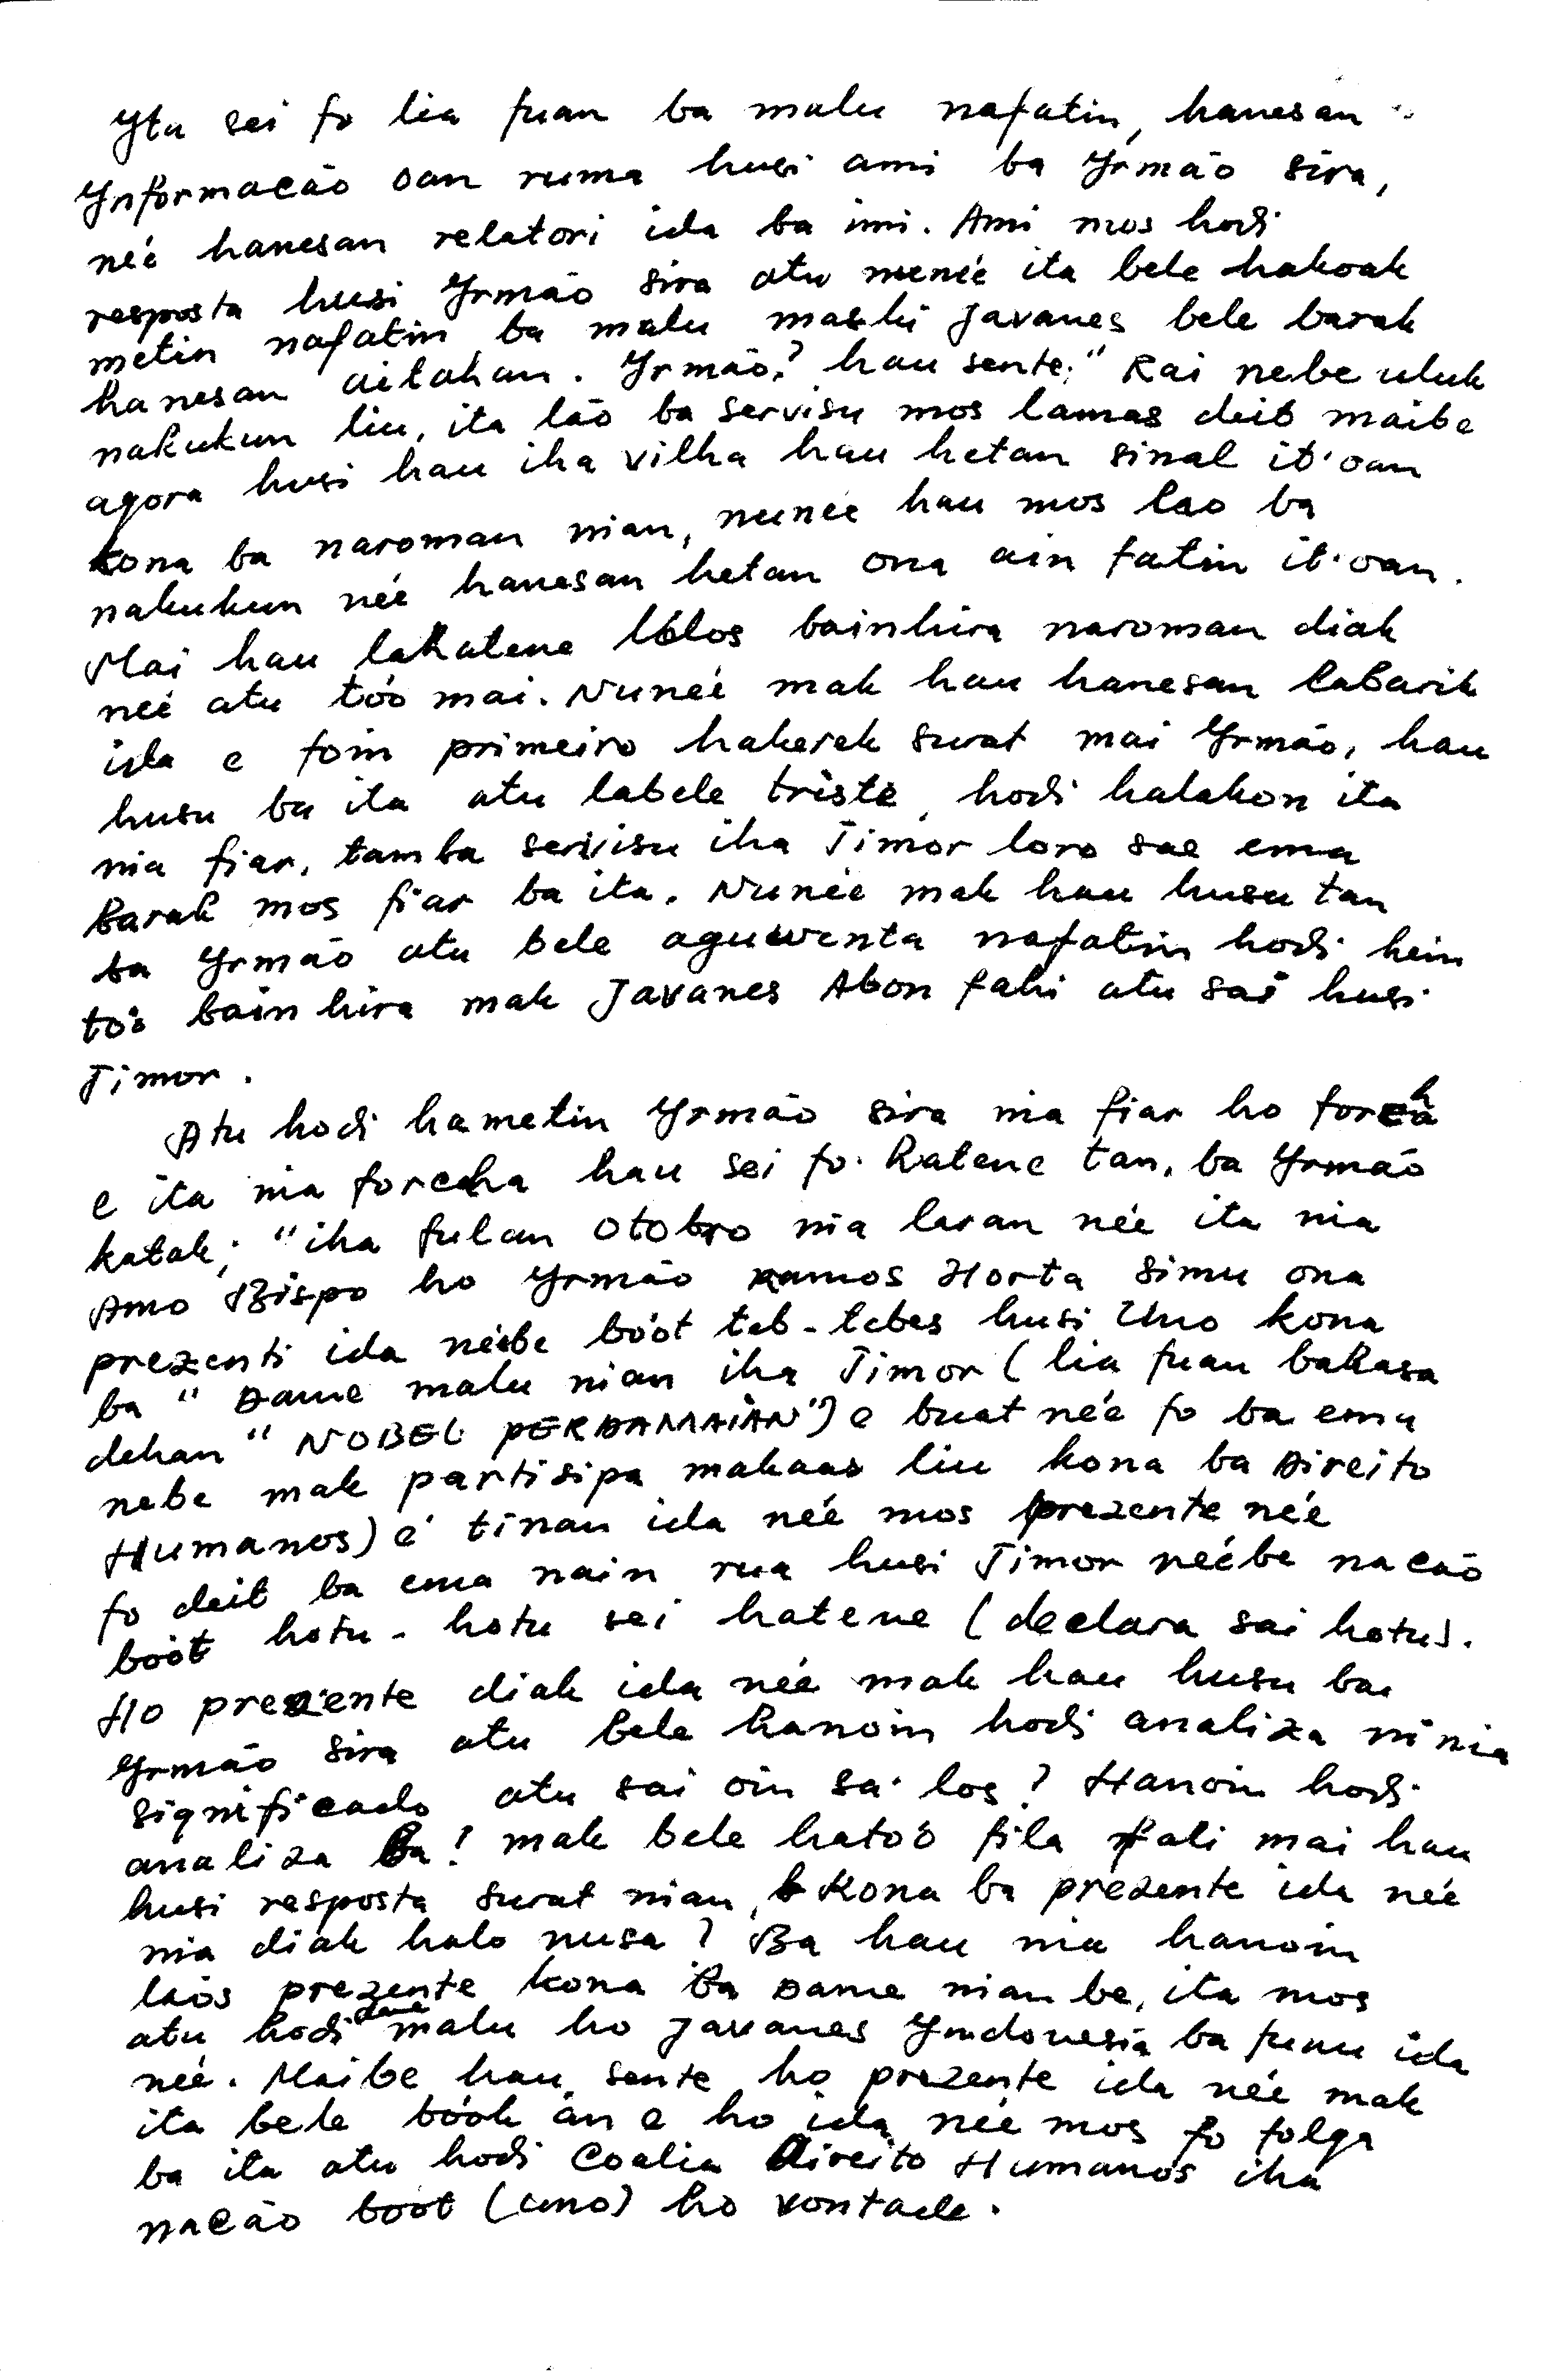 Yta sei fo lia fuan ba malu nafatin, hanesan
Ynformacão oan ruma husi ami ba Yrmão sira,
neé hanesan relatori ida ba imi. Ami mos hodi
resposta husi Yrmão sira atu meneé ita bele hakoak
metin nafatin ba malu maski Javanes bele barak
hanesan aitahan. Yrmão? hau sente; "Rai nebe uluk
nakukun liu, ita lão ba servisu mos lamas deit maibe
agora husi hau iha vilha hau hetan sinal it'oan
kona ba naroman nian, nuneé hau mos lao ba
nakukun neé hanesan hetan ona ain fatin it'oan.
Mai hau laKatene lólos bainhira naroman diak
neé atu tóo mai. Nuneé mak hau hanesan labarik
ida e foin primeiro hakerek surat mai Yrmão, hau
husu ba ita atu labele triste, hodi halakon ita
nia fiar, tamba servisu iha Timor loro sae ema
barak mos fiar ba ita. Nuneé mak hau husu tan
ba Yrmão atu bele aguwenta nafatin hodi hein
tóo bain hira mak Javanes Abon fahi atu sai husi
Timor.
Atu hodi hametin Yrmão sira nia fiar ho forcha
e ita nia forcha hau sei fo Katene tan, ba Yrmão
katak; "iha fulan Otobro nia laran neé ita nia
Amo Bispo ho Yrmão ramos Horta simu ona
prezenti ida neébe bóot teb-tebes husi Uno kona
ba "Dame malu nian iha Timor (lia fuan bahasa
dehan "NOBEL PERDAMAIAN") e buat neé fo ba ema
nebe mak partisipa makaas liu kona ba Direito
Humanos) e tinan ida neé mos prezente neé
fo deit ba ema nain rua husi Timor neébe nacão
bóot hotu-hotu sei hatene (declara sai hotu).
Ho prezente diak ida neé mak hau husu ba
Yrmão sira atu bele hanoin hodi analiza ninia
significado atu sai oin sa los? Hanoin hodi
analiza ba! mak bele hatoó fila fali mai hau
husi resposta surat nian, Kona ba prezente ida neé
nia diak halo nusa? Ba hau nia hanoin
laós prezente kona ba Dame nian be, ita mos
atu hodi dame malu ho Javanes Yndonesia ba funu ida
neé. Maibe hau sente ho prezente ida neé mak
ita bele bóok án e ho ida neé mos fo folga
ba ita atu hodi Coalia Direito Humanos iha
nacão boot (uno) ho vontade.